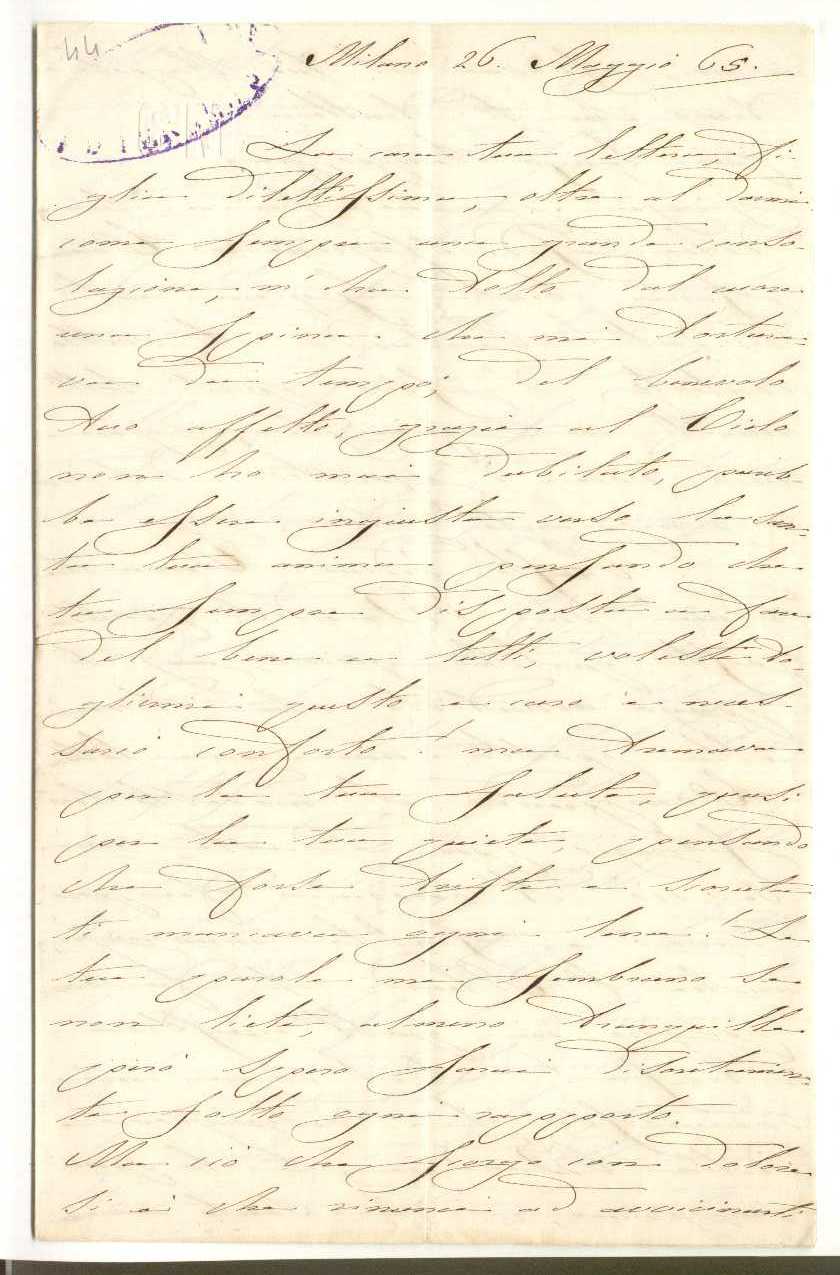 44
Milano 26. Maggio 65.
La cara tua lettera, fi-
glia dilettissima, oltre al darmi
come sempre una grande conso-
lazione, m'ha tolto dal core
una spina che mi tortura-
va da tempo; del benevolo
tuo affetto, grazie al Cielo
non ho mai dubitato, sareb-
be essere ingiusta verso la san-
ta tua anima pensando che
tu sempre disposta a fare
del bene a tutti, volessi to-
gliermi questo e caro e neces-
sario conforto! ma tremava
per la tua salute, quasi
per la tua quiete, pensando
che forse triste e sconsolata
ti mancava ogni lena! Le
tue parole mi sembrano se
non liete, almeno tranquille
però spero sarai discretamen-
te sotto ogni rapporto.
Ma ciò che scorgo con dolore
si è che rinunci ad avvicinarti